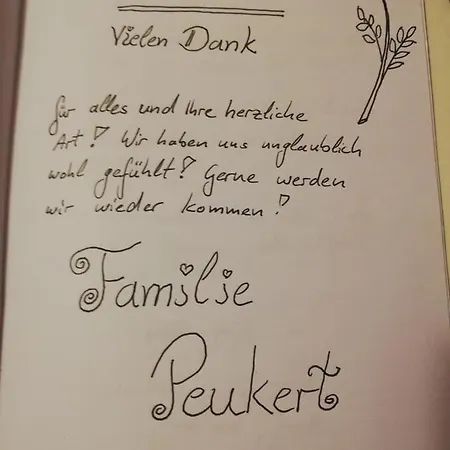 Vielen Dank
für alles und Ihre herzliche
Art! Wir haben uns unglaublich
wohl gefühlt! Gerne werden
wir wieder kommen!
Familie
Peukert